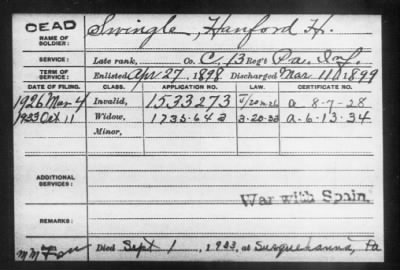 DEAD
NAME OF SOLDIER: Swingle, Hanford H.
SERVICE: Late rank, Co. C, 13 Reg't Pa. Inf.
TERM OF SERVICE: Enlisted Apr 27, 1898 Discharged Mar 11, 1899
DATE OF FILING. CLASS. APPLICATION NO. LAW. CERTIFICATE NO.
1926 Mar 4 Invalid, 1533273
1933 Oct 11 Widow,
Minor,
ADDITIONAL SERVICES:
War with Spain.
REMARKS:
Died Sept 1, 1933, at Susquehanna, Pa